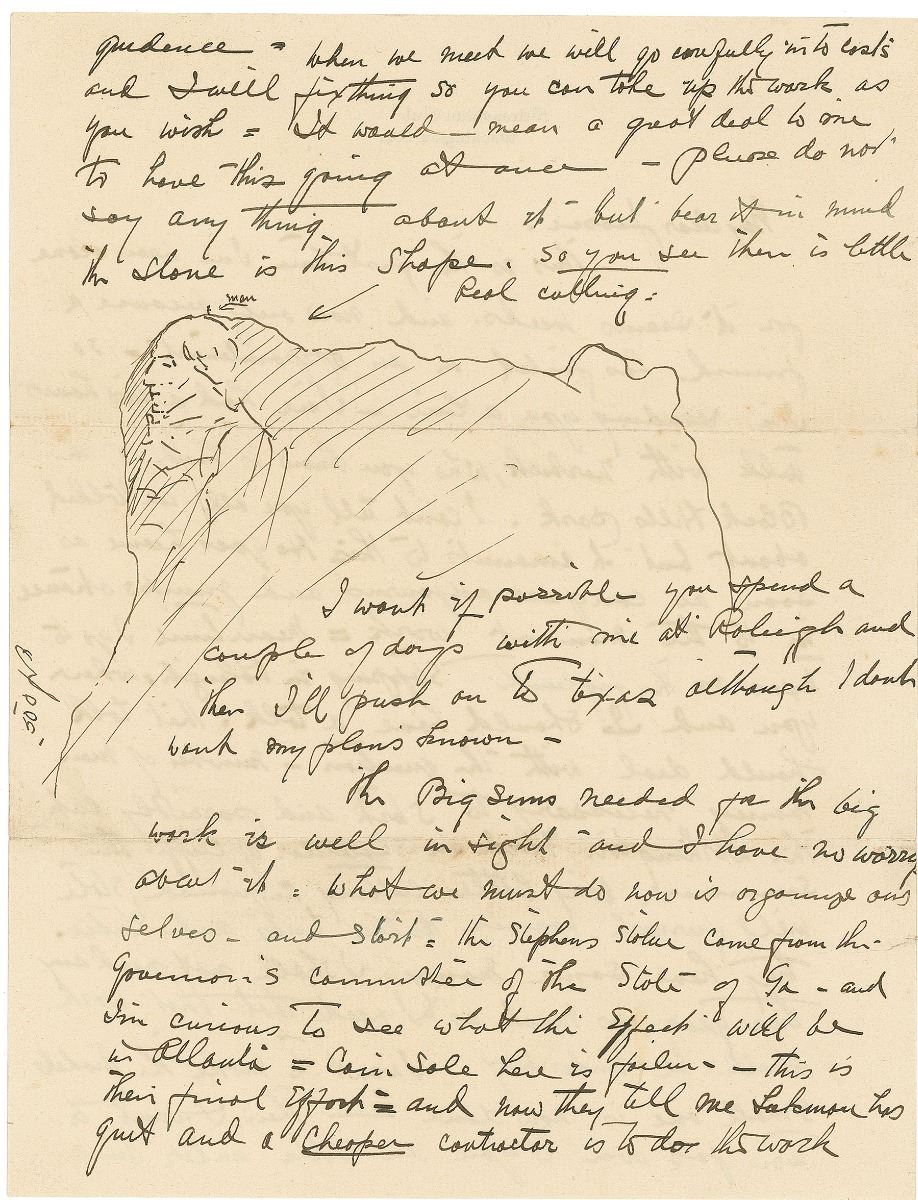 when we meet we will go carefully into costs
and I will fix thing so you can take up the work as
you wish = It would mean a great deal to me
to have this going at once - please do not
say any thing about it but bear it in mind
the stone is this shape. So you see then is little
Real cutting =
man
I want if possible you spend a
couple of days with me at Raleigh and
then I'll push on To Texas although I dont
want my plans known -
The Big sums needed for the big
work is well in sight and I have no worry
about it = what we must do now is organize our
selves - and start = the Stephens Statue come from the
Governor's committee of the State of Ga - and
I'm curious To see what the Effect will be
in Atlanta = Coin Sale here is failure - this is
their final Effort = and now they tell me has
quit and a Cheaper contractor is to do the work